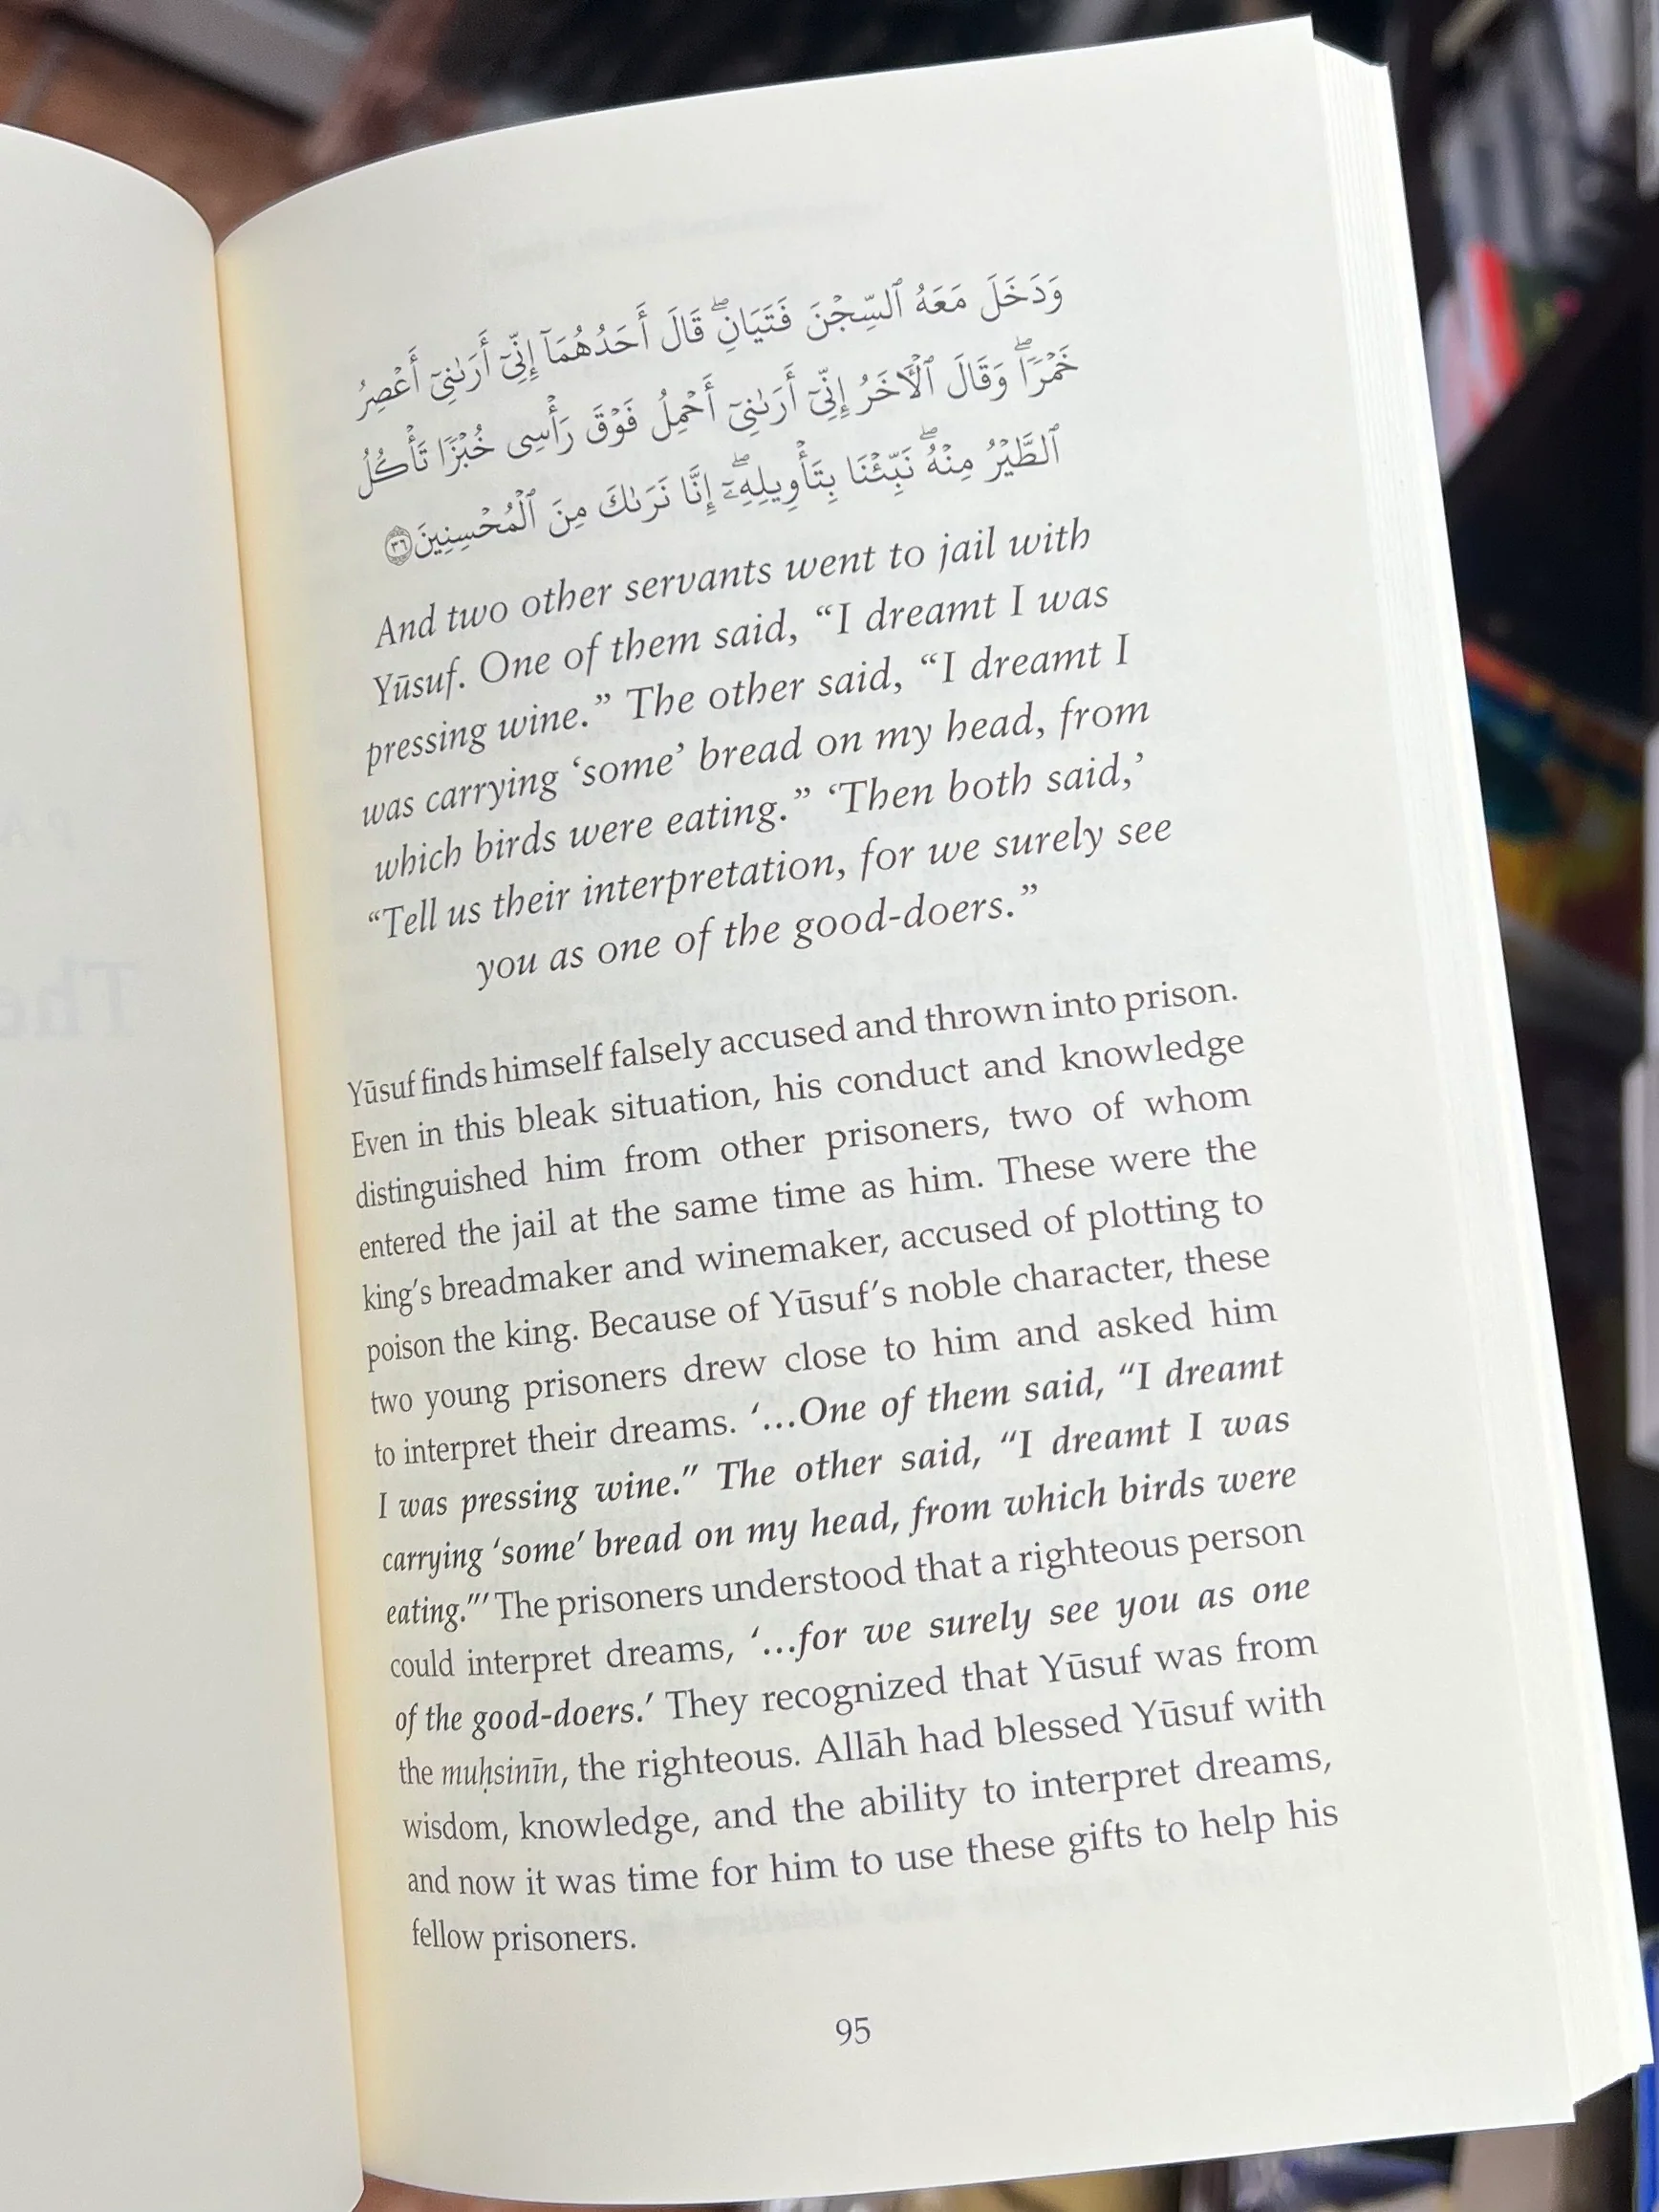 وَدَخَلَ مَعَهُ ٱلسِّجْنَ فَتَيَانِ ۖ قَالَ أَحَدُهُمَآ إِنِّىٓ أَرَىٰنِىٓ أَعْصِرُ
خَمْرًا ۖ وَقَالَ ٱلْـَٔاخَرُ إِنِّىٓ أَرَىٰنِىٓ أَحْمِلُ فَوْقَ رَأْسِى خُبْزًا تَأْكُلُ
ٱلطَّيْرُ مِنْهُ ۖ نَبِّئْنَا بِتَأْوِيلِهِۦٓ ۖ إِنَّا نَرَىٰكَ مِنَ ٱلْمُحْسِنِينَ ٣٦
And two other servants went to jail with
Yūsuf. One of them said, “I dreamt I was
pressing wine.” The other said, “I dreamt I
was carrying ‘some’ bread on my head, from
which birds were eating.” ‘Then both said,’
“Tell us their interpretation, for we surely see
you as one of the good-doers.”
Yūsuf finds himself falsely accused and thrown into prison.
Even in this bleak situation, his conduct and knowledge
distinguished him from other prisoners, two of whom
entered the jail at the same time as him. These were the
king’s breadmaker and winemaker, accused of plotting to
poison the king. Because of Yūsuf’s noble character, these
two young prisoners drew close to him and asked him
to interpret their dreams. ‘…One of them said, “I dreamt
I was pressing wine.” The other said, “I dreamt I was
carrying ‘some’ bread on my head, from which birds were
eating.”’ The prisoners understood that a righteous person
could interpret dreams, ‘…for we surely see you as one
of the good-doers.’ They recognized that Yūsuf was from
the muḥsinīn, the righteous. Allāh had blessed Yūsuf with
wisdom, knowledge, and the ability to interpret dreams,
and now it was time for him to use these gifts to help his
fellow prisoners.
95